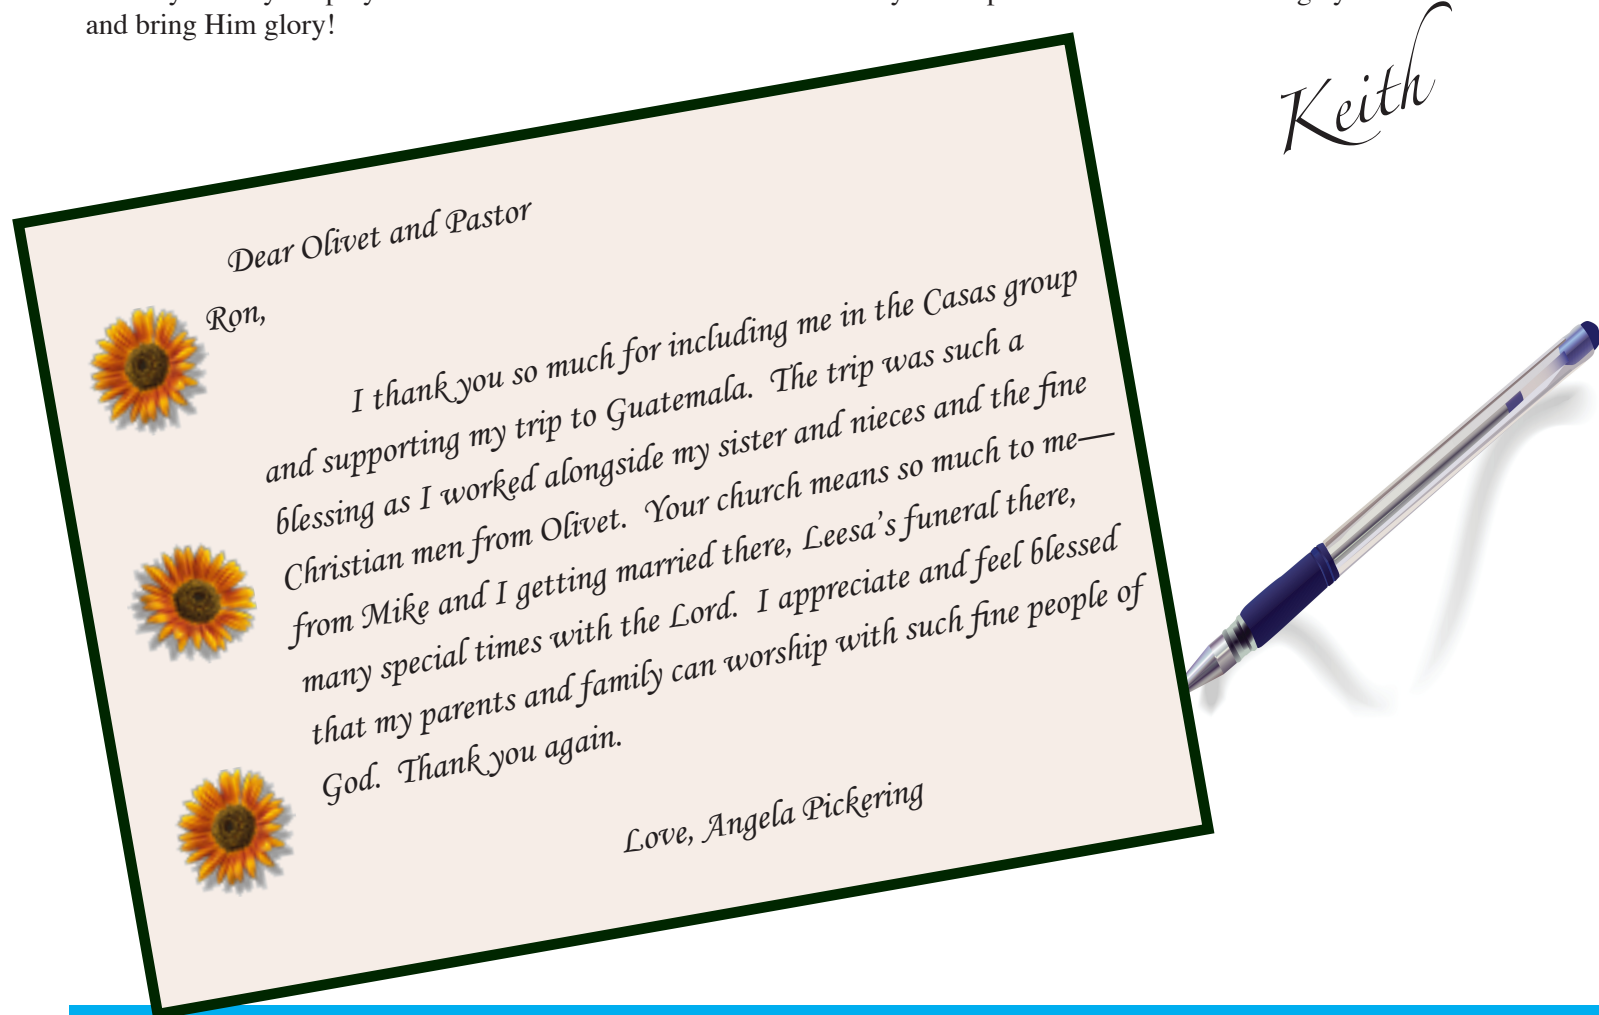 and bring Him glory!
Keith
Dear Olivet and Pastor
Ron,
I thank you so much for including me in the Casas group
and supporting my trip to Guatemala.  The trip was such a
blessing as I worked alongside my sister and nieces and the fine
Christian men from Olivet.  Your church means so much to me—
from Mike and I getting married there, Leesa’s funeral there,
many special times with the Lord.  I appreciate and feel blessed
that my parents and family can worship with such fine people of
God.  Thank you again.
Love, Angela Pickering